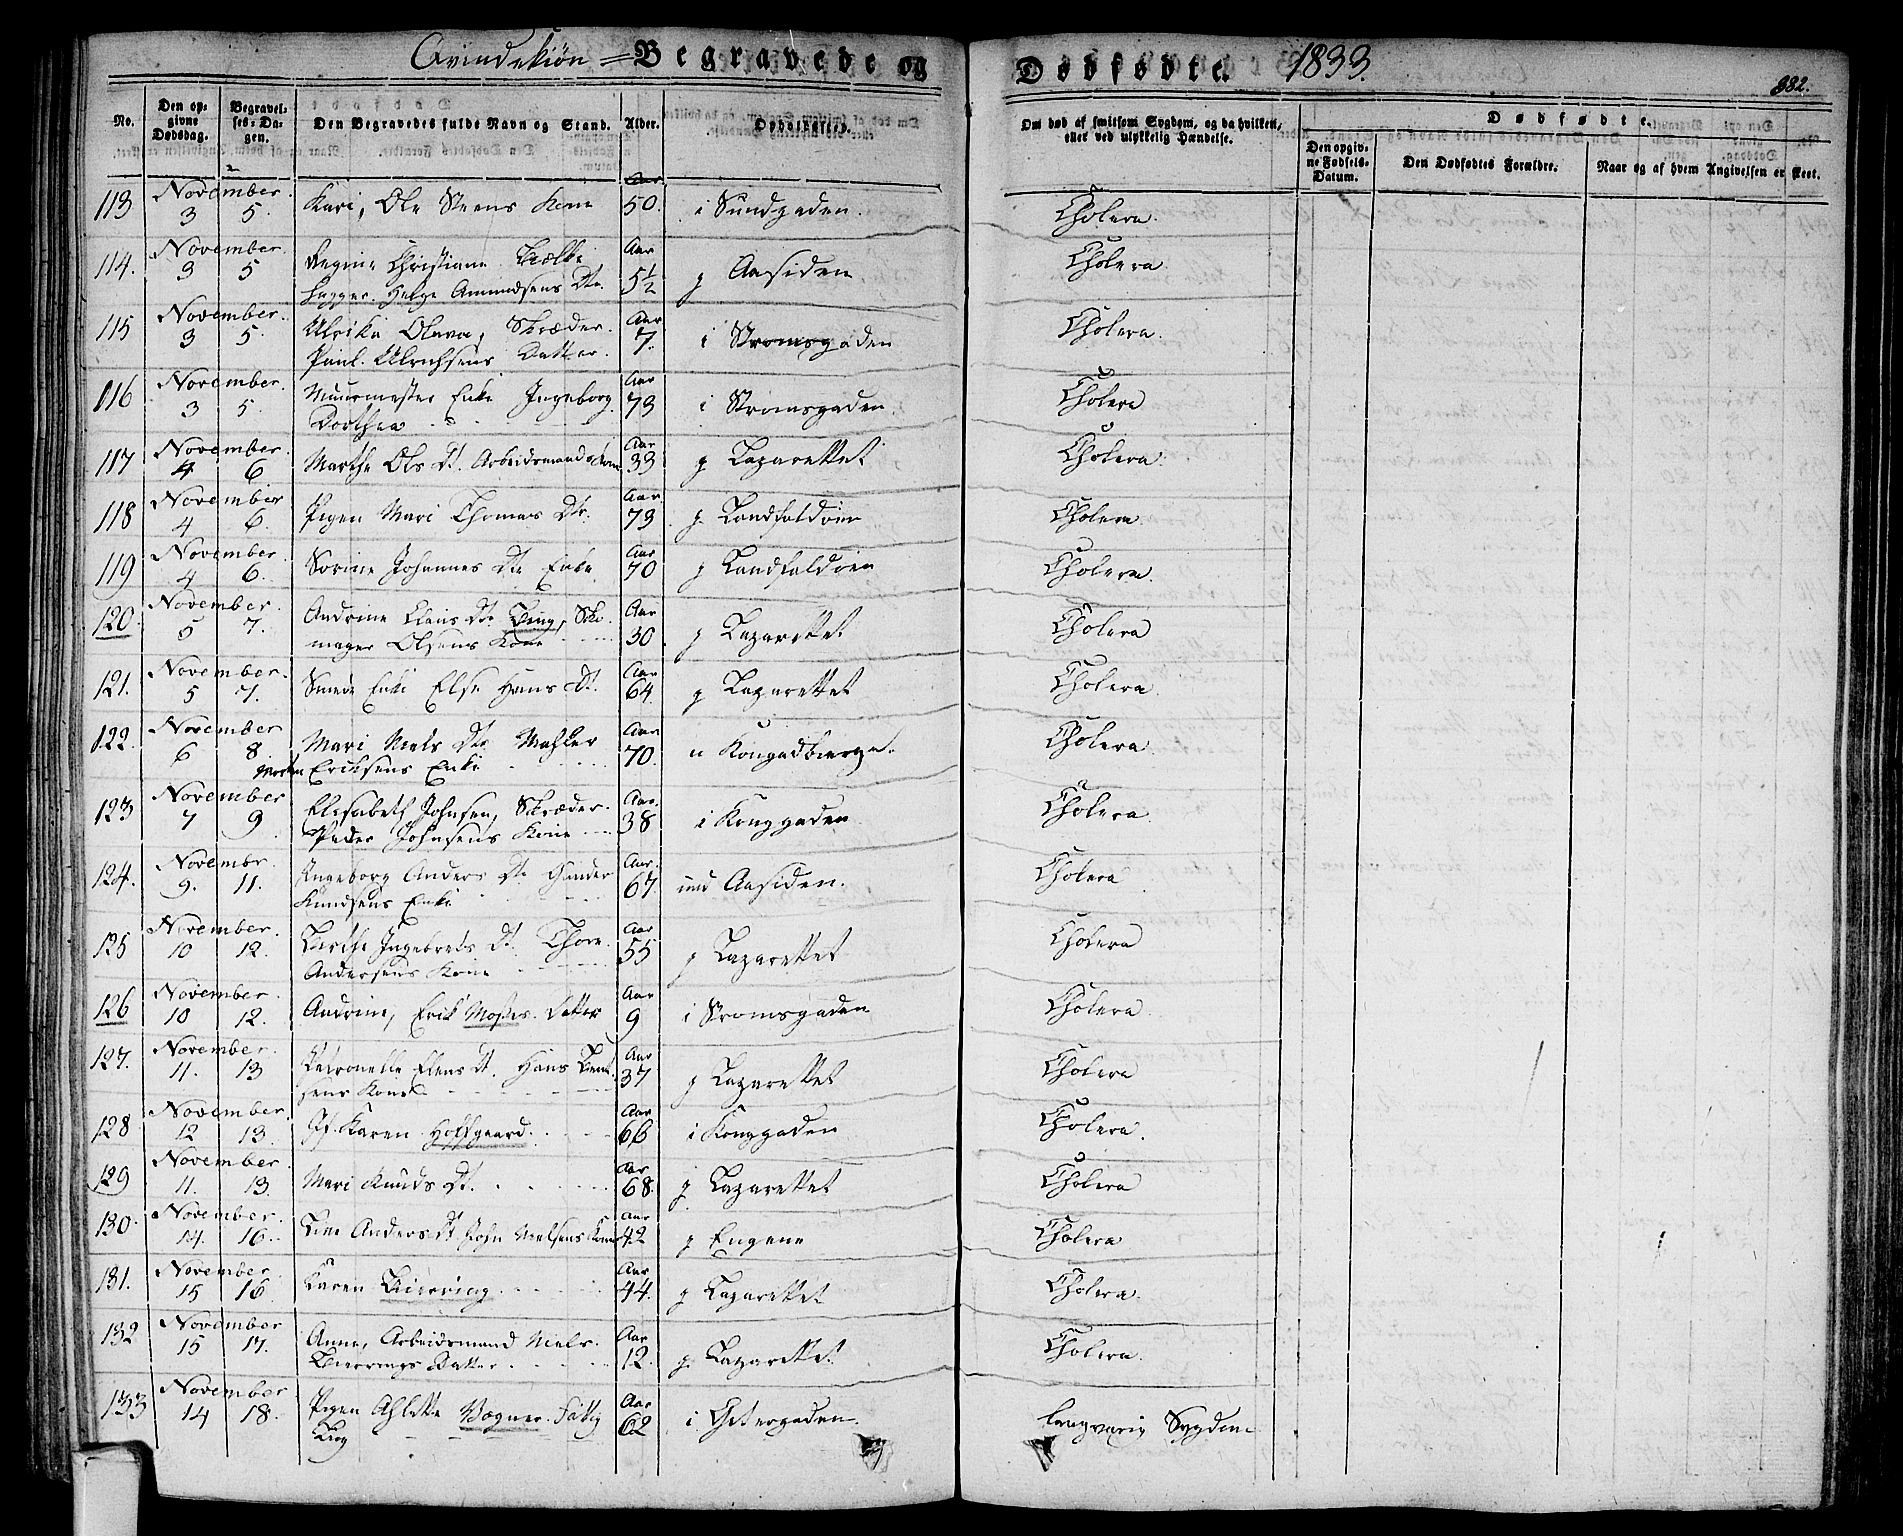 Qvindekiøn = Begravede og Dødfødte. 1833.
382.
No. Den opgivne Dødsdag. Begravelses-Dagen. Den Begravedes fulde Navn og Stand. Alder. Dødssted. Om død af smitsom Sygdom, og da hvilken, eller ved ulykkelig Hændelse. Dødfødte.
Den opgivne Fødsels-Datum. Den Dødfødtes Forældre. Naar og af hvem Angivelsen er skeet.
113 November 3 5. Kari, Ole Steens Kone Aar 50. i Sundgaden. Cholera.
114. November 3 5 Regine Christiane
Helge Amundsens Dtr. Aar 5½ p Aasiden Cholera.
115 November. 3 5. Ulrika Olava, Skræder
Paul Ulrichsens Datter. Aar 7. i Stromsgaden Cholera.
116 November. 3 5. Muurmester Enke Ingeborg
Dorthea Aar 73 i Stromsgaden Cholera
117 November. 4 6 Marthe Ols Dt. Arbeidsmands Kone Aar 33 p Lazarettet Cholera.
118 November 4 6. Pigen Mari Thomas Dtr. Aar. 73. p Landfaldøen Cholera.
119 November. 4 6. Sorine Johannes Dtr Enke Aar 70 p Landfaldøen Cholera.
120. November. 5 7. Andrine Claus Dtr Bing, Sko-
mager Olsens Kone Aar 30. p Lazarettet Cholera
121. November. 5 7. Smede Enke Else Hans Dt. Aar 64. p Lazarettet Cholera.
122. November 6 8 Mari Niels Dtr Mahler
Morten Eriksens Enke Aar 70. Kongsbierget. Cholera.
123 November 7 9 Elisabeth Johnsen, Skræder
Peder Johnsens Kone Aar. 38 i Konggaden Cholera.
124. Novembr. 9. 11. Ingeborg Anders Dt. Gunder
Knudsens Enke Aar. 67. ved Aasiden. Cholera
125 November. 10 12. Berthe Ingebrets Dt. Thore
Andersens Kone Aar 55 p Lazarettet Cholera
126 November. 10 12. Andrine, Erik Moses. Datter Aar 9 i Stromsgaden Cholera.
127. November. 11. 13 Petronelle Elens Dt. Hans
sens Kone Aar 37 p Lazarettet Cholera
128 November. 12 13. Jf. Karen Hoffgaard. Aar 66 i Konggaden Cholera.
129 November. 11. 13. Mari Knuds Dt. Aar 68. p Lazarettet Cholera
130. November. 14. 16. Line Anders Dt John Nielsens Kone Aar 42 p Engene Cholera
131. November. 15 16. Karen Bierring Aar. 44. p Lazarettet Cholera.
132 November 15 17. Anne, Arbeidsmand Niels
Bierrings Datter Aar 12. p. Lazarettet. Cholera.
133 November 14 18. Pigen Ahlette Wegner. Fattig
Aar 62 i Gitergaden. Langvarig Sygdom